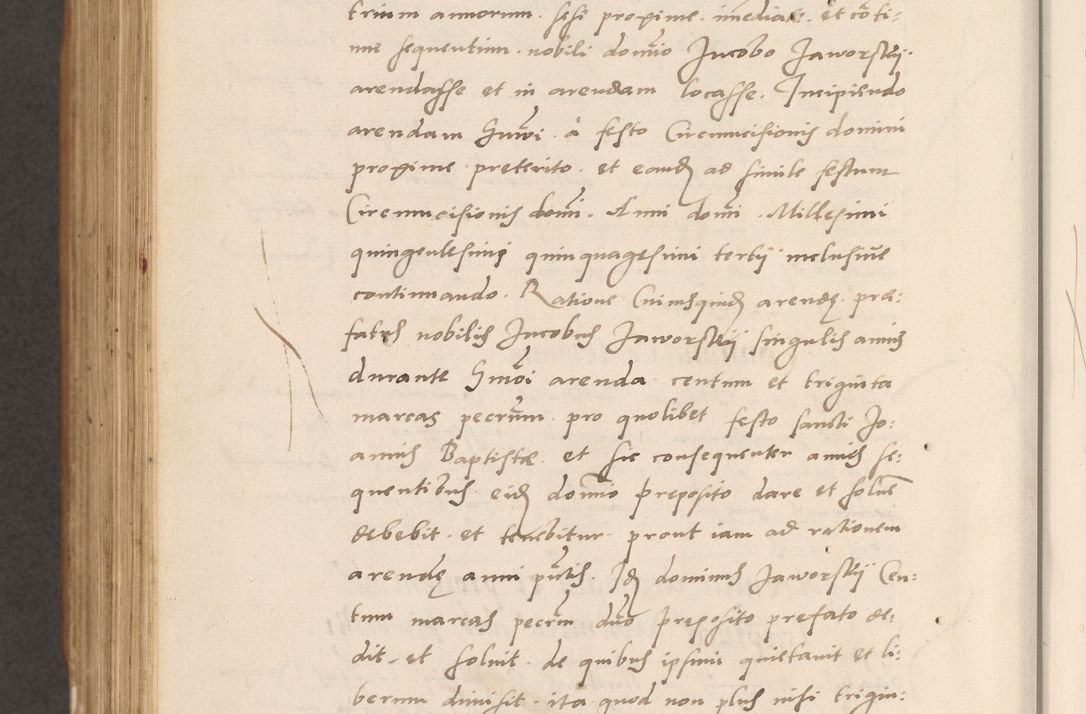 trium annorum. sese proxime. immediate. et cōti:
nue sequentium. nobili domīo Jacobo Jaworskÿ.
arendasse et in arendam locasse. Incipiendo
arendam hm̄oi. a festo Circumcisionis domini
proxime preterito. et eand͛ ad simile festum
Circumcisionis domī. Anni domī. Millesimi
quingentesimi quinquagesimi tertÿ inclusiue
continuando. Ratione Cuiusquid͛ arendę. præ:
fatus nobilis Jacobus Jaworskÿ singulis annis
durante hm̄oi arenda. centum et triginta
marcas pecun̄. pro quolibet festo sancti Jo:
annis Baptistæ. et sic consequenter annis se:
quentibus eid͛ domīo preposito dare et soluē
debebit. et tenebitur. prout iam ad rationem
arendę anni pn̄tis. Id͛ dominus Jaworskÿ Cen:
tum marcas pecun̄ dn̄o preposito prefato de:
dit. et soluit. de quibus ipsum quietauit et li:
berum dimisit. ita quod non plus nisi trigin: